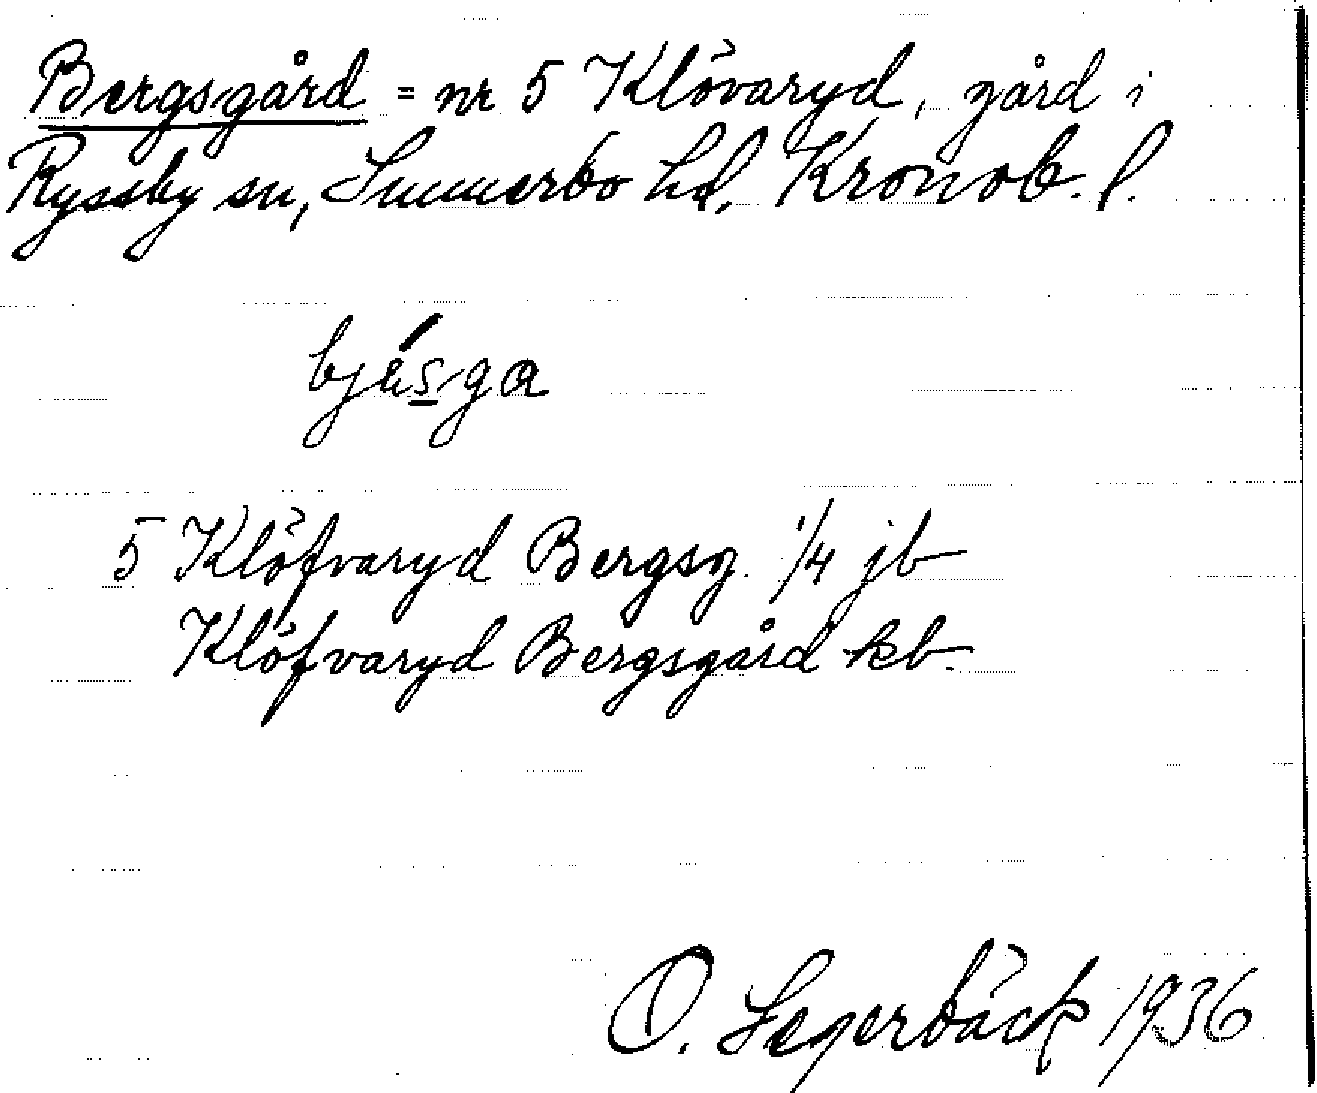 Bergsgård = nr 5 Klövaryd, gård i
Ryssby sn, Sunnerbo hd, Kronob. l.
5 Klöfvaryd Bergsg. 1/4 jb
Klöfvaryd Bergsgård kb.
O. Segerbäck 1936